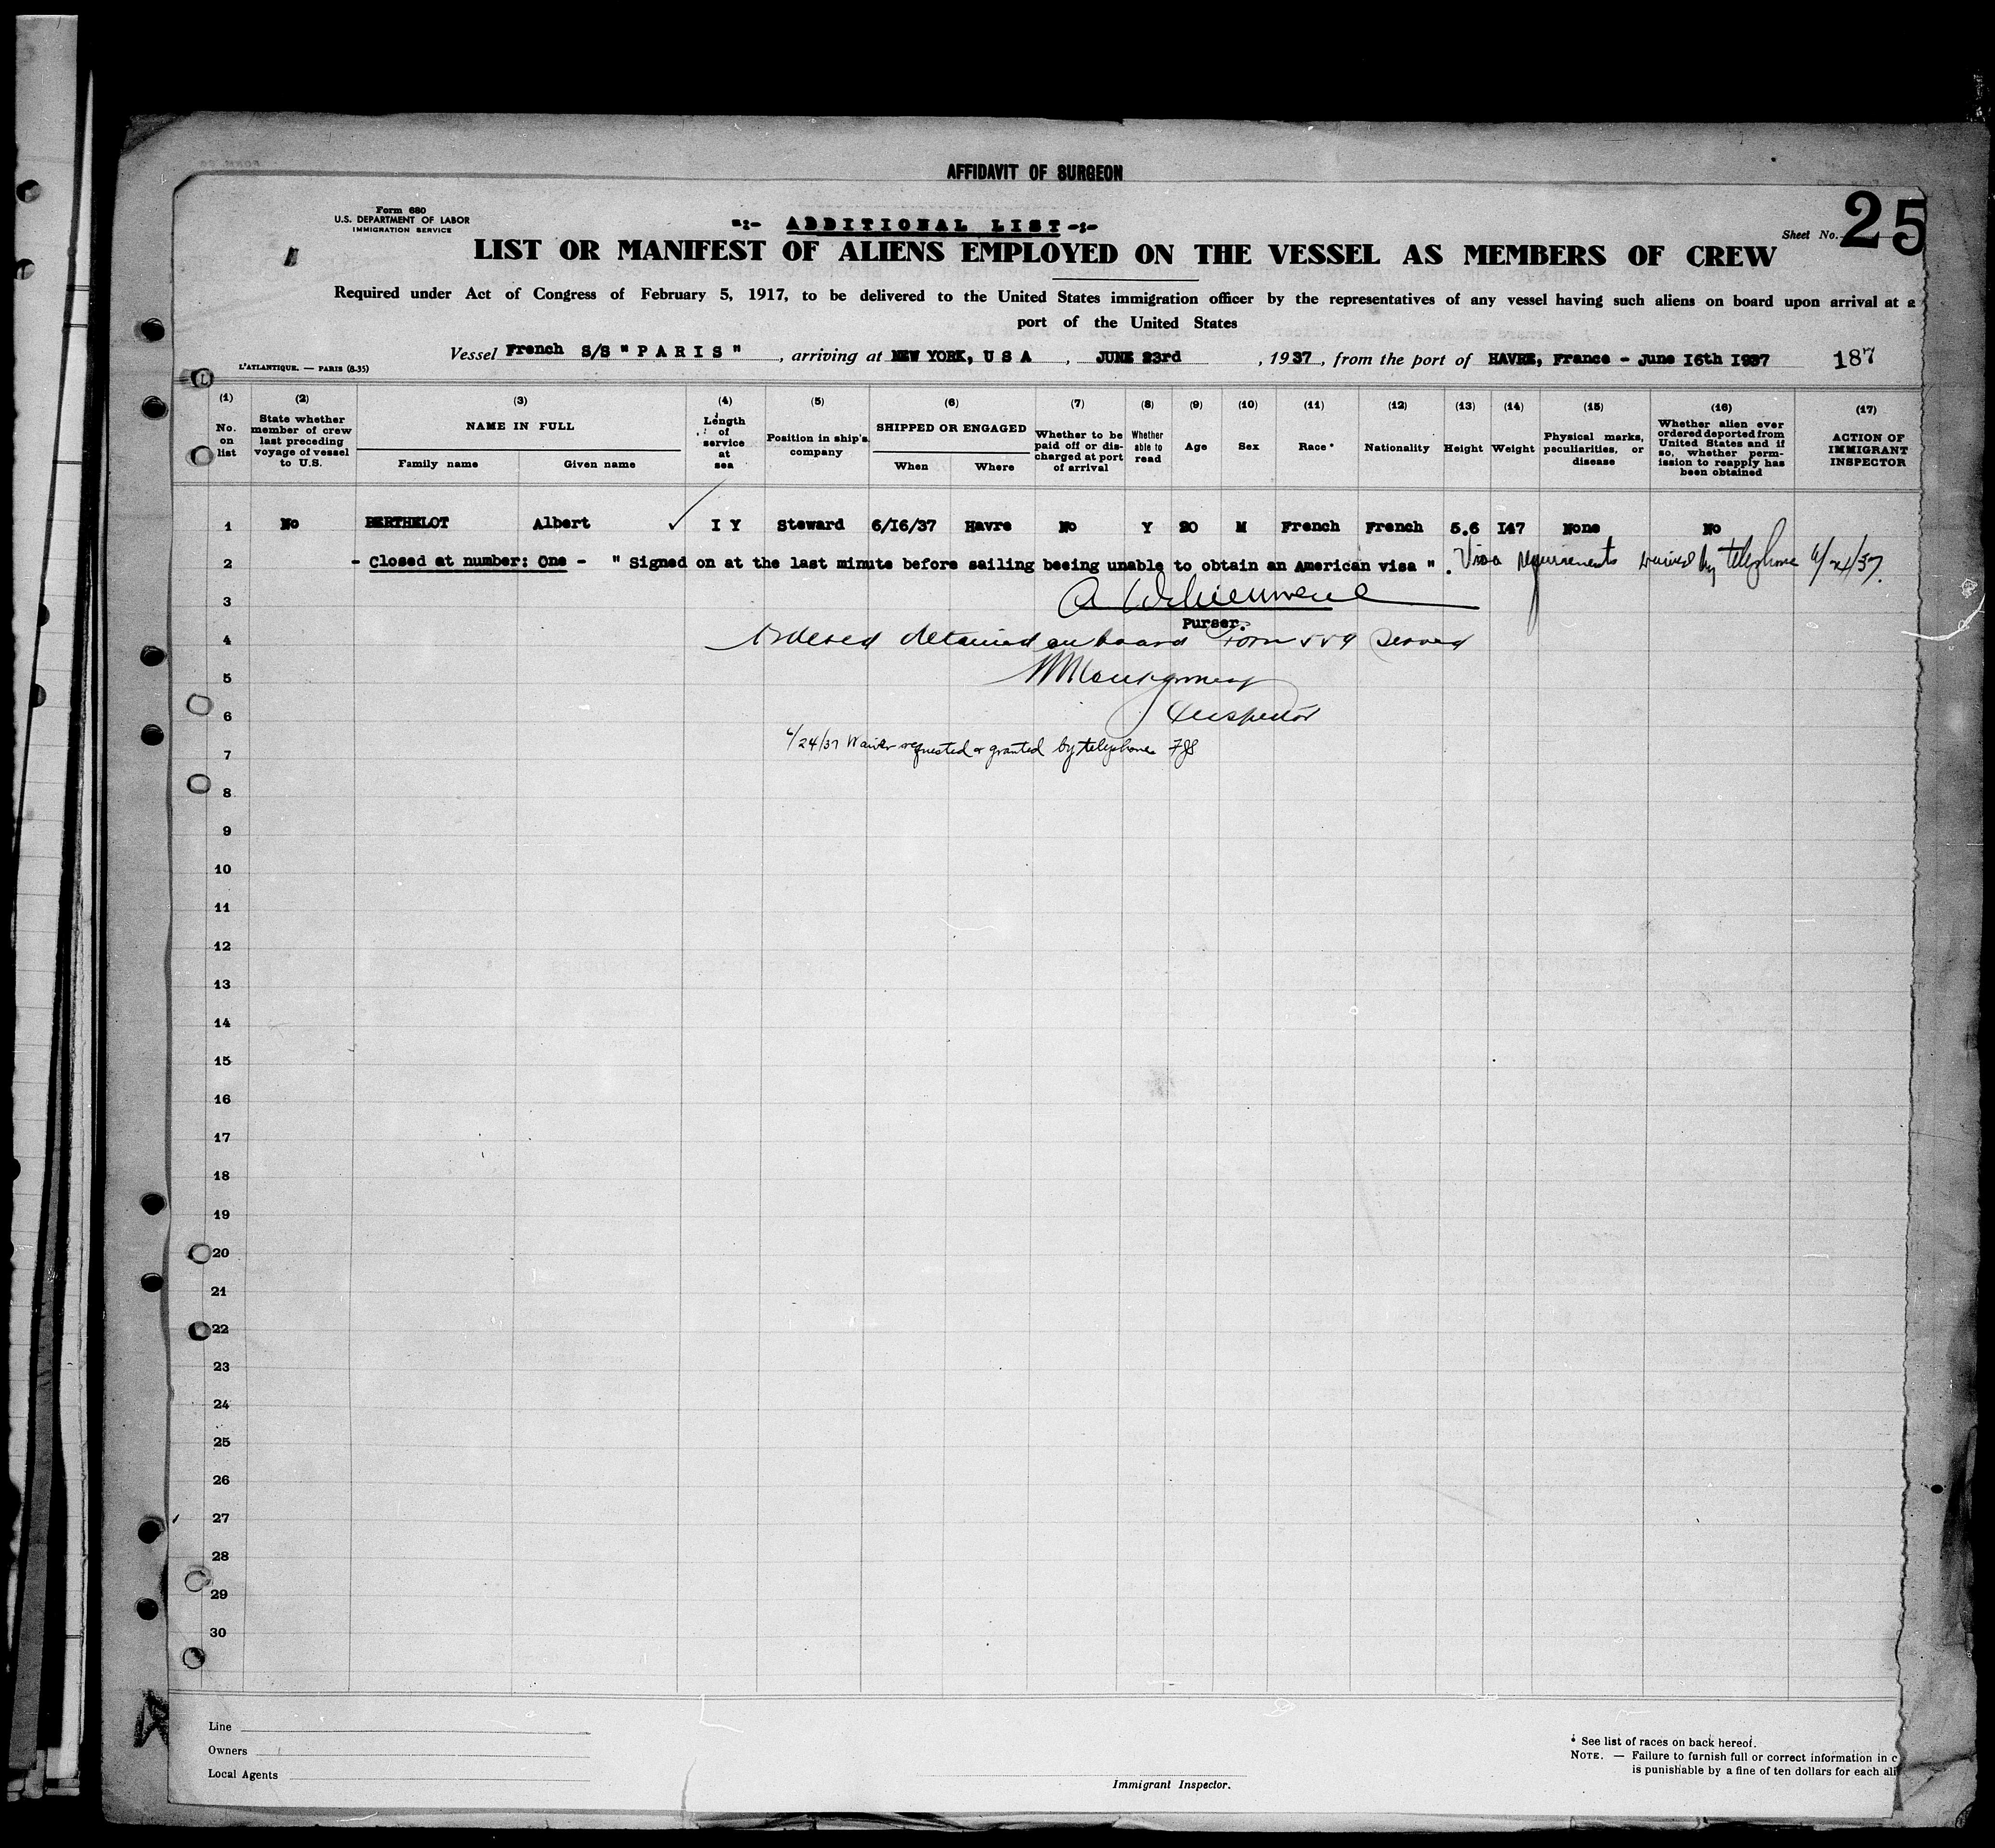 AFFIDAVIT OF SURGEON
Form 680
U.S. DEPARTMENT OF LABOR
IMMIGRATION SERVICE
-:- ADDITIONAL LIST -:-
Sheet No. 25
LIST OR MANIFEST OF ALIENS EMPLOYED ON THE VESSEL AS MEMBERS OF CREW
Required under Act of Congress of February 5, 1917, to be delivered to the United States immigration officer by the representatives of any vessel having such aliens on board upon arrival at a
port of the United States
Vessel French S/S "PARIS", arriving at NEW YORK, USA, JUNE 23rd, 1937, from the port of HAVRE, France - June 16th 1937 187
L'ATLANTIQUE. — PARIS (8-35)
(1) No. on list
(2) State whether member of crew last preceding voyage of vessel to U.S.
(3) NAME IN FULL
Family name Given name
(4) Length of service at sea
(5) Position in ship's company
(6) SHIPPED OR ENGAGED
When Where
(7) Whether to be paid off or discharged at port of arrival
(8) Whether able to read
(9) Age
(10) Sex
(11) Race*
(12) Nationality
(13) Height
(14) Weight
(15) Physical marks, peculiarities, or disease
(16) Whether alien ever ordered deported from United States and if so, whether permission to reapply has been obtained
(17) ACTION OF IMMIGRANT INSPECTOR
1 No BERTHELOT Albert ✓ I Y Steward 6/I6/37 Havre No Y 20 M French French 5.6 I47 None No
2 - Closed at number: One - " Signed on at the last minute before sailing beeing unable to obtain an American visa ". Visa requirements waived by telephone 6/24/37.
3
Purser.
4 Ordered detained on board Form 559 served
5 Montgomery
6 Inspector
7 6/24/37 Waiver requested & granted by telephone FJS
8
9
10
11
12
13
14
15
16
17
18
19
20
21
22
23
24
25
26
27
28
29
30
Line
Owners
Local Agents
Immigrant Inspector.
* See list of races on back hereof.
NOTE. — Failure to furnish full or correct information in c
is punishable by a fine of ten dollars for each ali